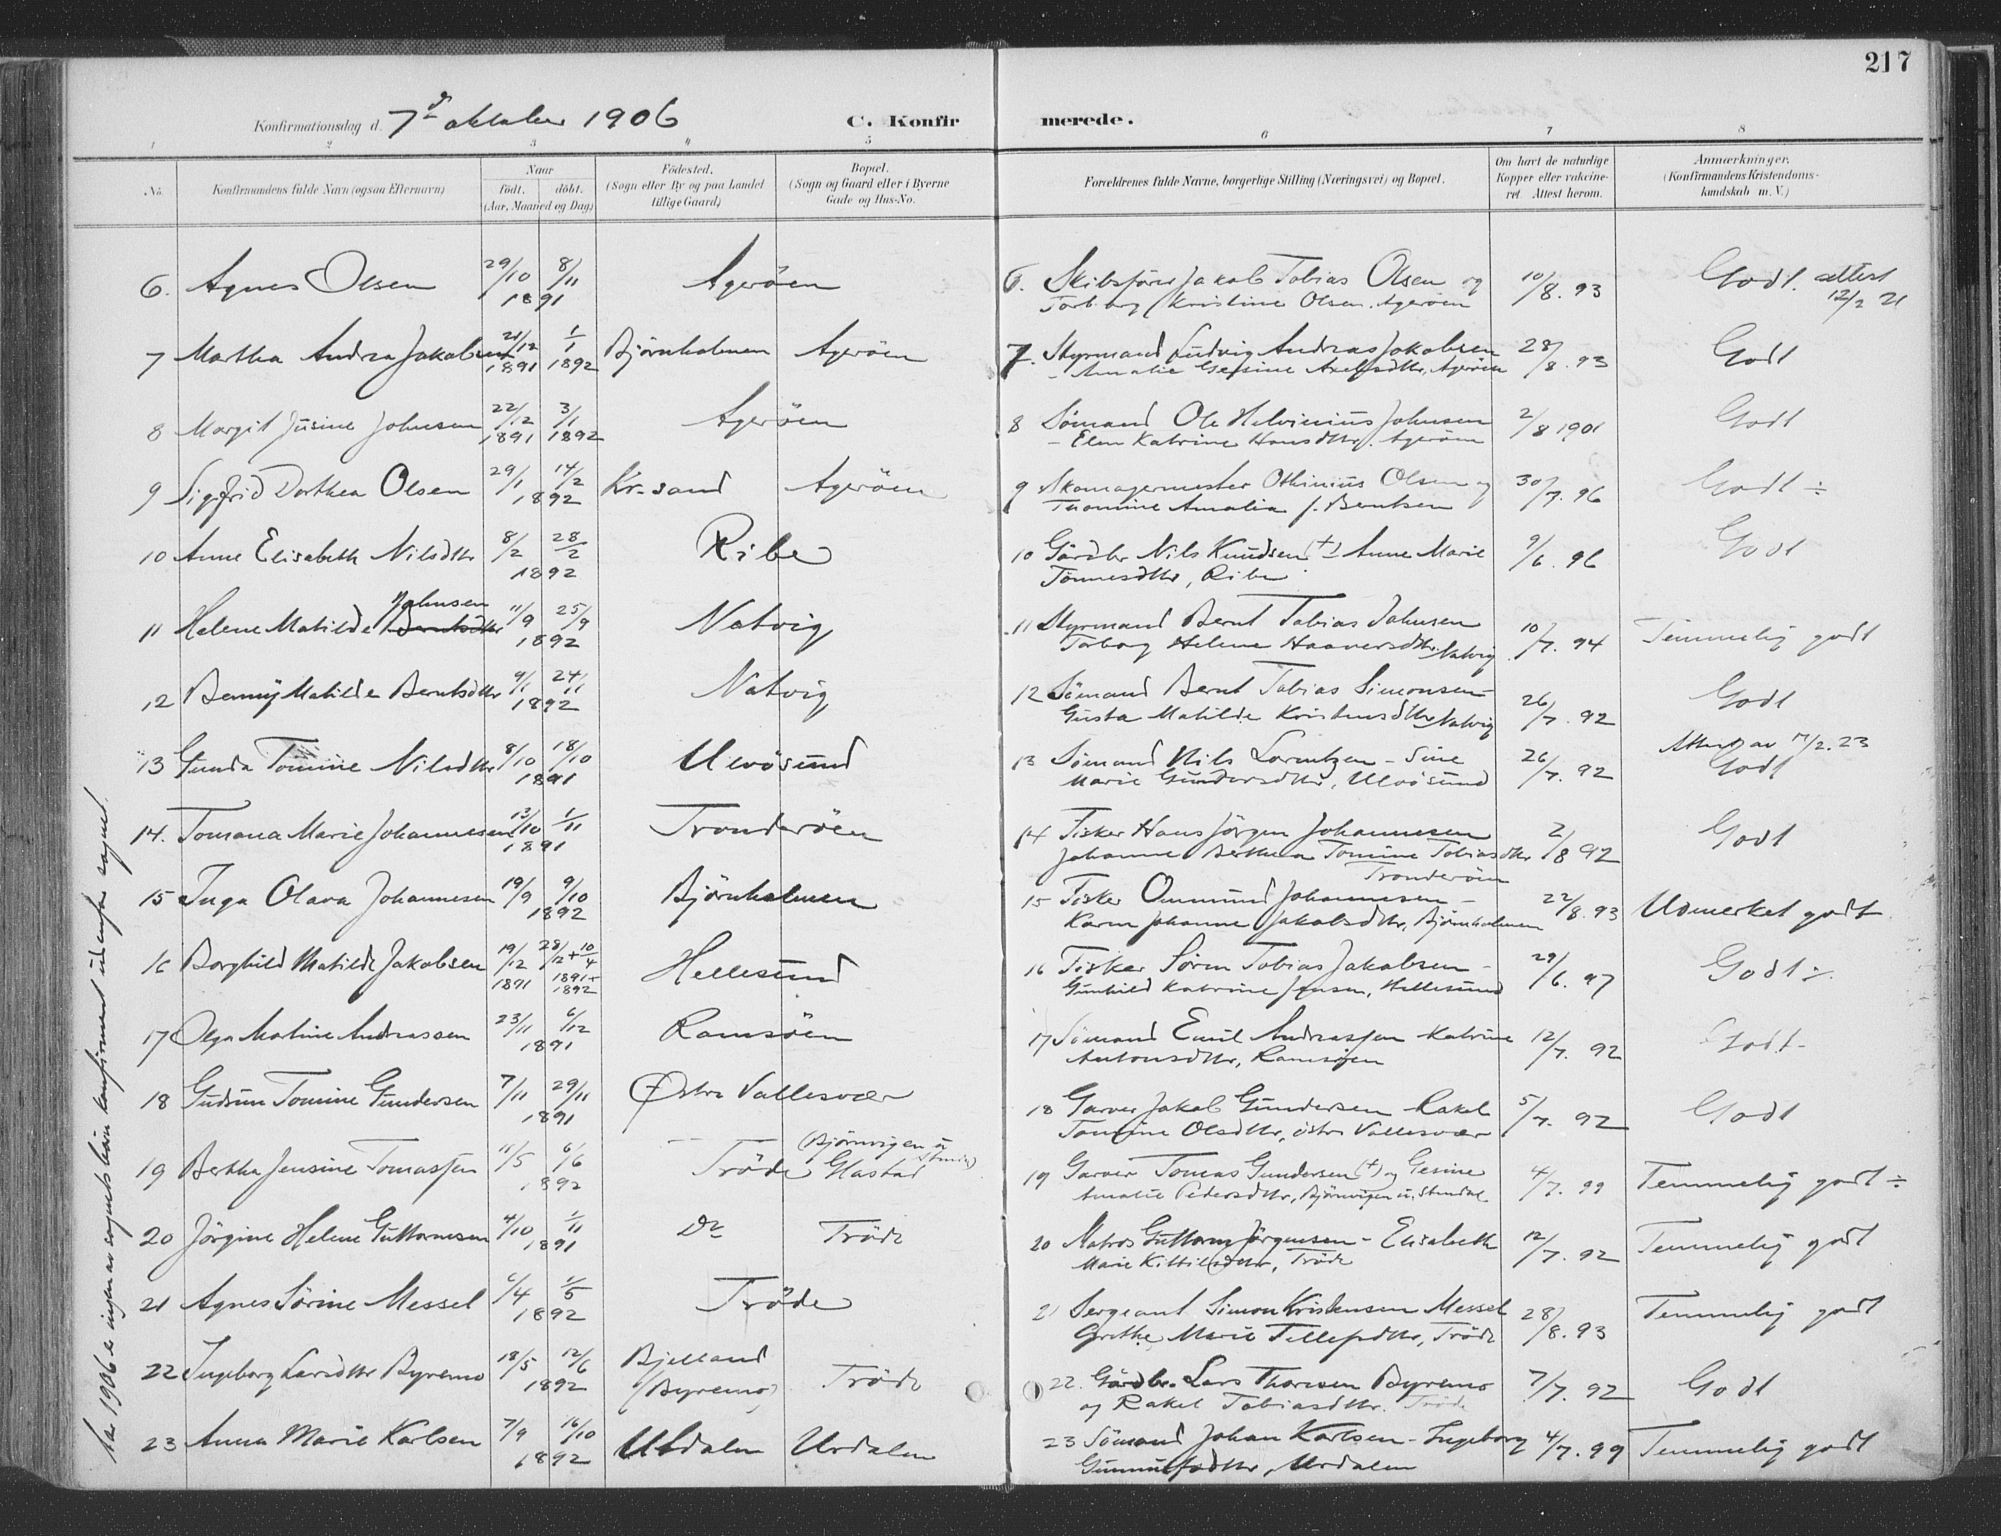 217
Konfirmationsdag d. 7de oktober 1906 C. Konfirmerede.
1 2 3 4 5 6 7 8
No. Konfirmandens fulde Navn (ogsaa Efternavn) Naar født. døbt. (Aar, Maaned og Dag) Fødested. (Sogn eller By og paa Landet tillige Gaard) Bopæl. (Sogn og Gaard eller i Byerne Gade og Hus-No. Forældrenes fulde Navne, borgerlige Stilling (Næringsvei) og Bopæl. Om havt de naturlige Kopper eller vakcineret. Attest herom. Anmærkninger. (Konfirmandens Kristendomskundskab m. V.)
6. Agnes Olsen 29/10 8/11 1891 Agerøen 6. Skibsfører Jakob Tobias Olsen og 10/8. 93 Godt. attest 12/2 21
Torborg Kristine Olsen. Agerøen
7 Martha Andrea Jakobsen 21/12 1891 1/1 1892 Bjørnholmen Agerøen 7. Styrmand Ludvig Andreas Jakobsen 28/8. 93 Godt
- Amalie Gesine Axelsdtr, Agerøen
8 Margit Jusine Johnsen 22/12 1891 3/1 1892 Agerøen 8 Sømand Ole Helvinius Johnsen 2/8 1901 Godt
- Elen Katrine Hansdtr. Agerøen
9 Sigfrid Dorthea Olsen 29/1 14/2 1892 Kr.sand Agerøen 9 Skomagermester Othinius Olsen og 30/7. 96 Godt ÷
Tomine Amalia f. Berntsen
10 Anne Elisabeth Nilsdtr 8/2 28/2 1892 Ribe 10 Gårdbr Nils Knudsen (+) - Anne Marie 9/6. 96 Godt
Tønnesdtr, Ribe
11 Helene Matilde Johnsen 11/9 25/9 1892 Natvig 11 Styrmand Bernt Tobias Johnsen 10/7. 94 Temmelig godt
Torborg Helene Haaversdtr. Natvig
12 Benny Matilde Berntsdtr 9/1 24/11 1892 Natvig 12 Sømand Bernt Tobias Simonsen - 26/7. 92 Godt
Gusta Matilde Kristensdtr Natvig
13 Gunda Tomine Nilsdtr 8/10 18/10 1891 Ulvøsund 13 Sømand Nils Lorentzen - Sine 26/7. 92 Attest av 17/2. 23 Godt
Marie Gundersdtr, Ulvøsund
14. Tomana Marie Johannesen 13/10 1/11 1891 Tronderøen 14 Fisker Hans Jørgen Johannesen 2/8 92 Godt
Johanne Berthea Tomine Tobiasdtr Tronderøen
15 Inga Olava Johannesen 19/9 9/10 1892 Bjørnholmen 15 Fisker Ommund Johannesen - 22/8. 93 Udmerket godt
Karen Johanne Jakobsdtr, Bjørnholmen
16 Borghild Matilde Jakobsen 19/12 1891 28/12 + 10/4 1891 + 1892 Hellesund 16 Fisker Søren Tobias Jakobsen - 29/6. 97 Godt ÷
Gunhild Katrine Jensen, Hellesund
17 Olga Martine Andreassen 23/11 6/12 1891 Ramsøen 17 Sømand Emil Andreassen Katrine 12/7. 92 Godt
Antonsdtr, Ramsøen
18 Gudrun Tomine Gundersen 7/11 29/11 1891 Østre Vallesvær 18 Garver Jakob Gundersen Rakel 5/7. 92 Godt
Tomine Olsdtr, østre Vallesvær
19 Bertha Jensine Tomassen 11/5 6/6 1892 Trøde Glastad 19 Garver Tomas Gundersen (+) og Gesine 4/7. 99 Temmelig godt ÷
Amalie Pedersdtr, Bjørnvigen u. Stendal
20 Jørgine Helene Guttormsen 4/10 1/11 1891 Do Trøde 20 Matros Guttorm Jørgensen - Elisabeth 12/7. 92 Temmelig godt
Marie Kittilsdtr, Trøde
21 Agnes Sørine Messel 6/4 1/5 1892 Trøde 21 Sergeant Simon Kristensen Messel 28/8. 93 Temmelig godt
Grethe Marie Tellefsdtr, Trøde
22 Ingeborg Larsdtr Byremo 18/5 12/6 1892 Bjelland (Byremo) Trøde 22. Gårdbr. Lars Thoresen Byremo 7/7. 92 Godt
og Rakel Tobiasdtr. Trøde
23 Anna Marie Karlsen 7/9 16/10 1892 Urdalen Urdalen 23 Sømand Johan Karlsen - Ingeborg 4/7. 99 Temmelig godt
Gunnulfsdtr, Urdalen
Aar 1906 er ingen av sognets børn konfirmeret udenfor sognet.